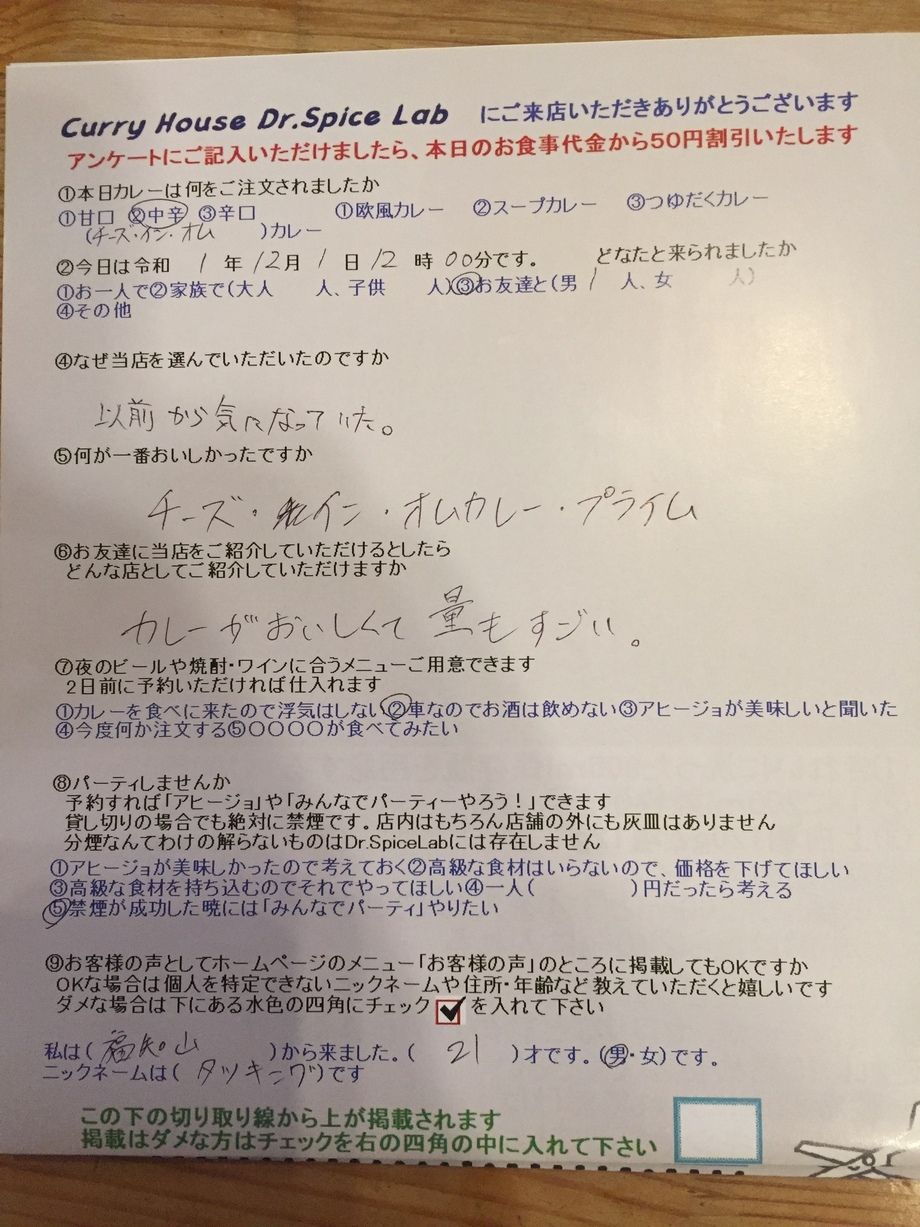 Curry House Dr.Spice Lab にご来店いただきありがとうございます
アンケートにご記入いただけましたら、本日のお食事代金から50円割引いたします
①本日カレーは何をご注文されましたか
①甘口 ②中辛 ③辛口 ①欧風カレー ②スープカレー ③つゆだくカレー
(チーズ・イン・オム )カレー
②今日は令和 1 年 12月 1 日 12 時 00分です。 どなたと来られましたか
①お一人で②家族で(大人 人、子供 人)③お友達と(男 1 人、女 人)
④その他
④なぜ当店を選んでいただいたのですか
以前から気になっていた。
⑤何が一番おいしかったですか
チーズ・イン・オムカレー・プライム
⑥お友達に当店をご紹介していただけるとしたら
どんな店としてご紹介していただけますか
カレーがおいしくて量もすごい。
⑦夜のビールや焼酎・ワインに合うメニューご用意できます
2日前に予約いただければ仕入れます
①カレーを食べに来たので浮気はしない②車なのでお酒は飲めない③アヒージョが美味しいと聞いた
④今度何か注文する⑤〇〇〇〇が食べてみたい
⑧パーティしませんか
予約すれば「アヒージョ」や「みんなでパーティーやろう！」できます
貸し切りの場合でも絶対に禁煙です。店内はもちろん店舗の外にも灰皿はありません
分煙なんてわけの解らないものはDr.SpiceLabには存在しません
①アヒージョが美味しかったので考えておく②高級な食材はいらないので、価格を下げてほしい
③高級な食材を持ち込むのでそれでやってほしい④一人( )円だったら考える
⑤禁煙が成功した暁には「みんなでパーティ」やりたい
⑨お客様の声としてホームページのメニュー「お客様の声」のところに掲載してもOKですか
OKな場合は個人を特定できないニックネームや住所・年齢など教えていただくと嬉しいです
ダメな場合は下にある水色の四角にチェック を入れて下さい
私は( 福知山 )から来ました。( 21 )才です。(男・女)です。
ニックネームは( タッキング )です
この下の切り取り線から上が掲載されます
掲載はダメな方はチェックを右の四角の中に入れて下さい